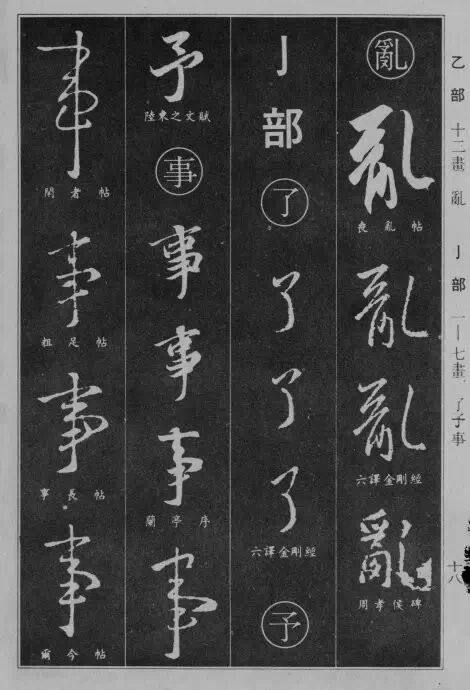 乙部 十二畫 亂 亅部 一—七畫 了予事
十八
亂
亂
喪亂帖
亂
亂
六譯金剛經
亂
周孝侯碑
亅部
了
了
了
了
六譯金剛經
予
予
陸柬之文賦
事
事
事
事
蘭亭序
事
事
者帖
事
粗足帖
事
事長帖
事
爾今帖